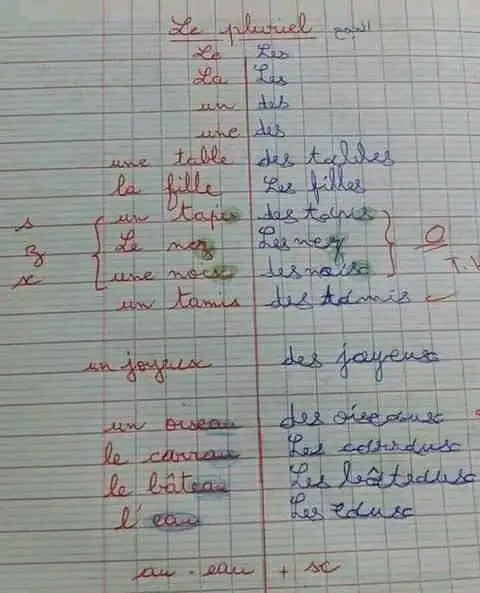 Le pluriel الجمع
Le Les
La Les
un des
une des
une table des tables
la fille Les filles
s un tapis des tapis
z Le nez Les nez O
x une noix des noix
un tamis des tamis
un joyeux des joyeux
un oiseau des oiseaux
le carrau Les carraux
le bâteau Les bâteaux
l'eau Les eaux
au - eau + x